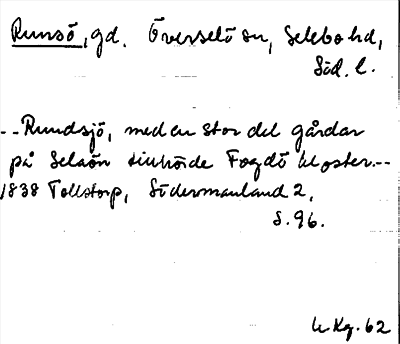 Runsö, gd. Överselö sn, Selebo hd,
Söd. l.
-- Rundsjö, med en stor del gårdar
på Selaön tillhörde Fogdö kloster --
1838 Tollstorp, Södermanland 2,
S. 96.
Kg. 62